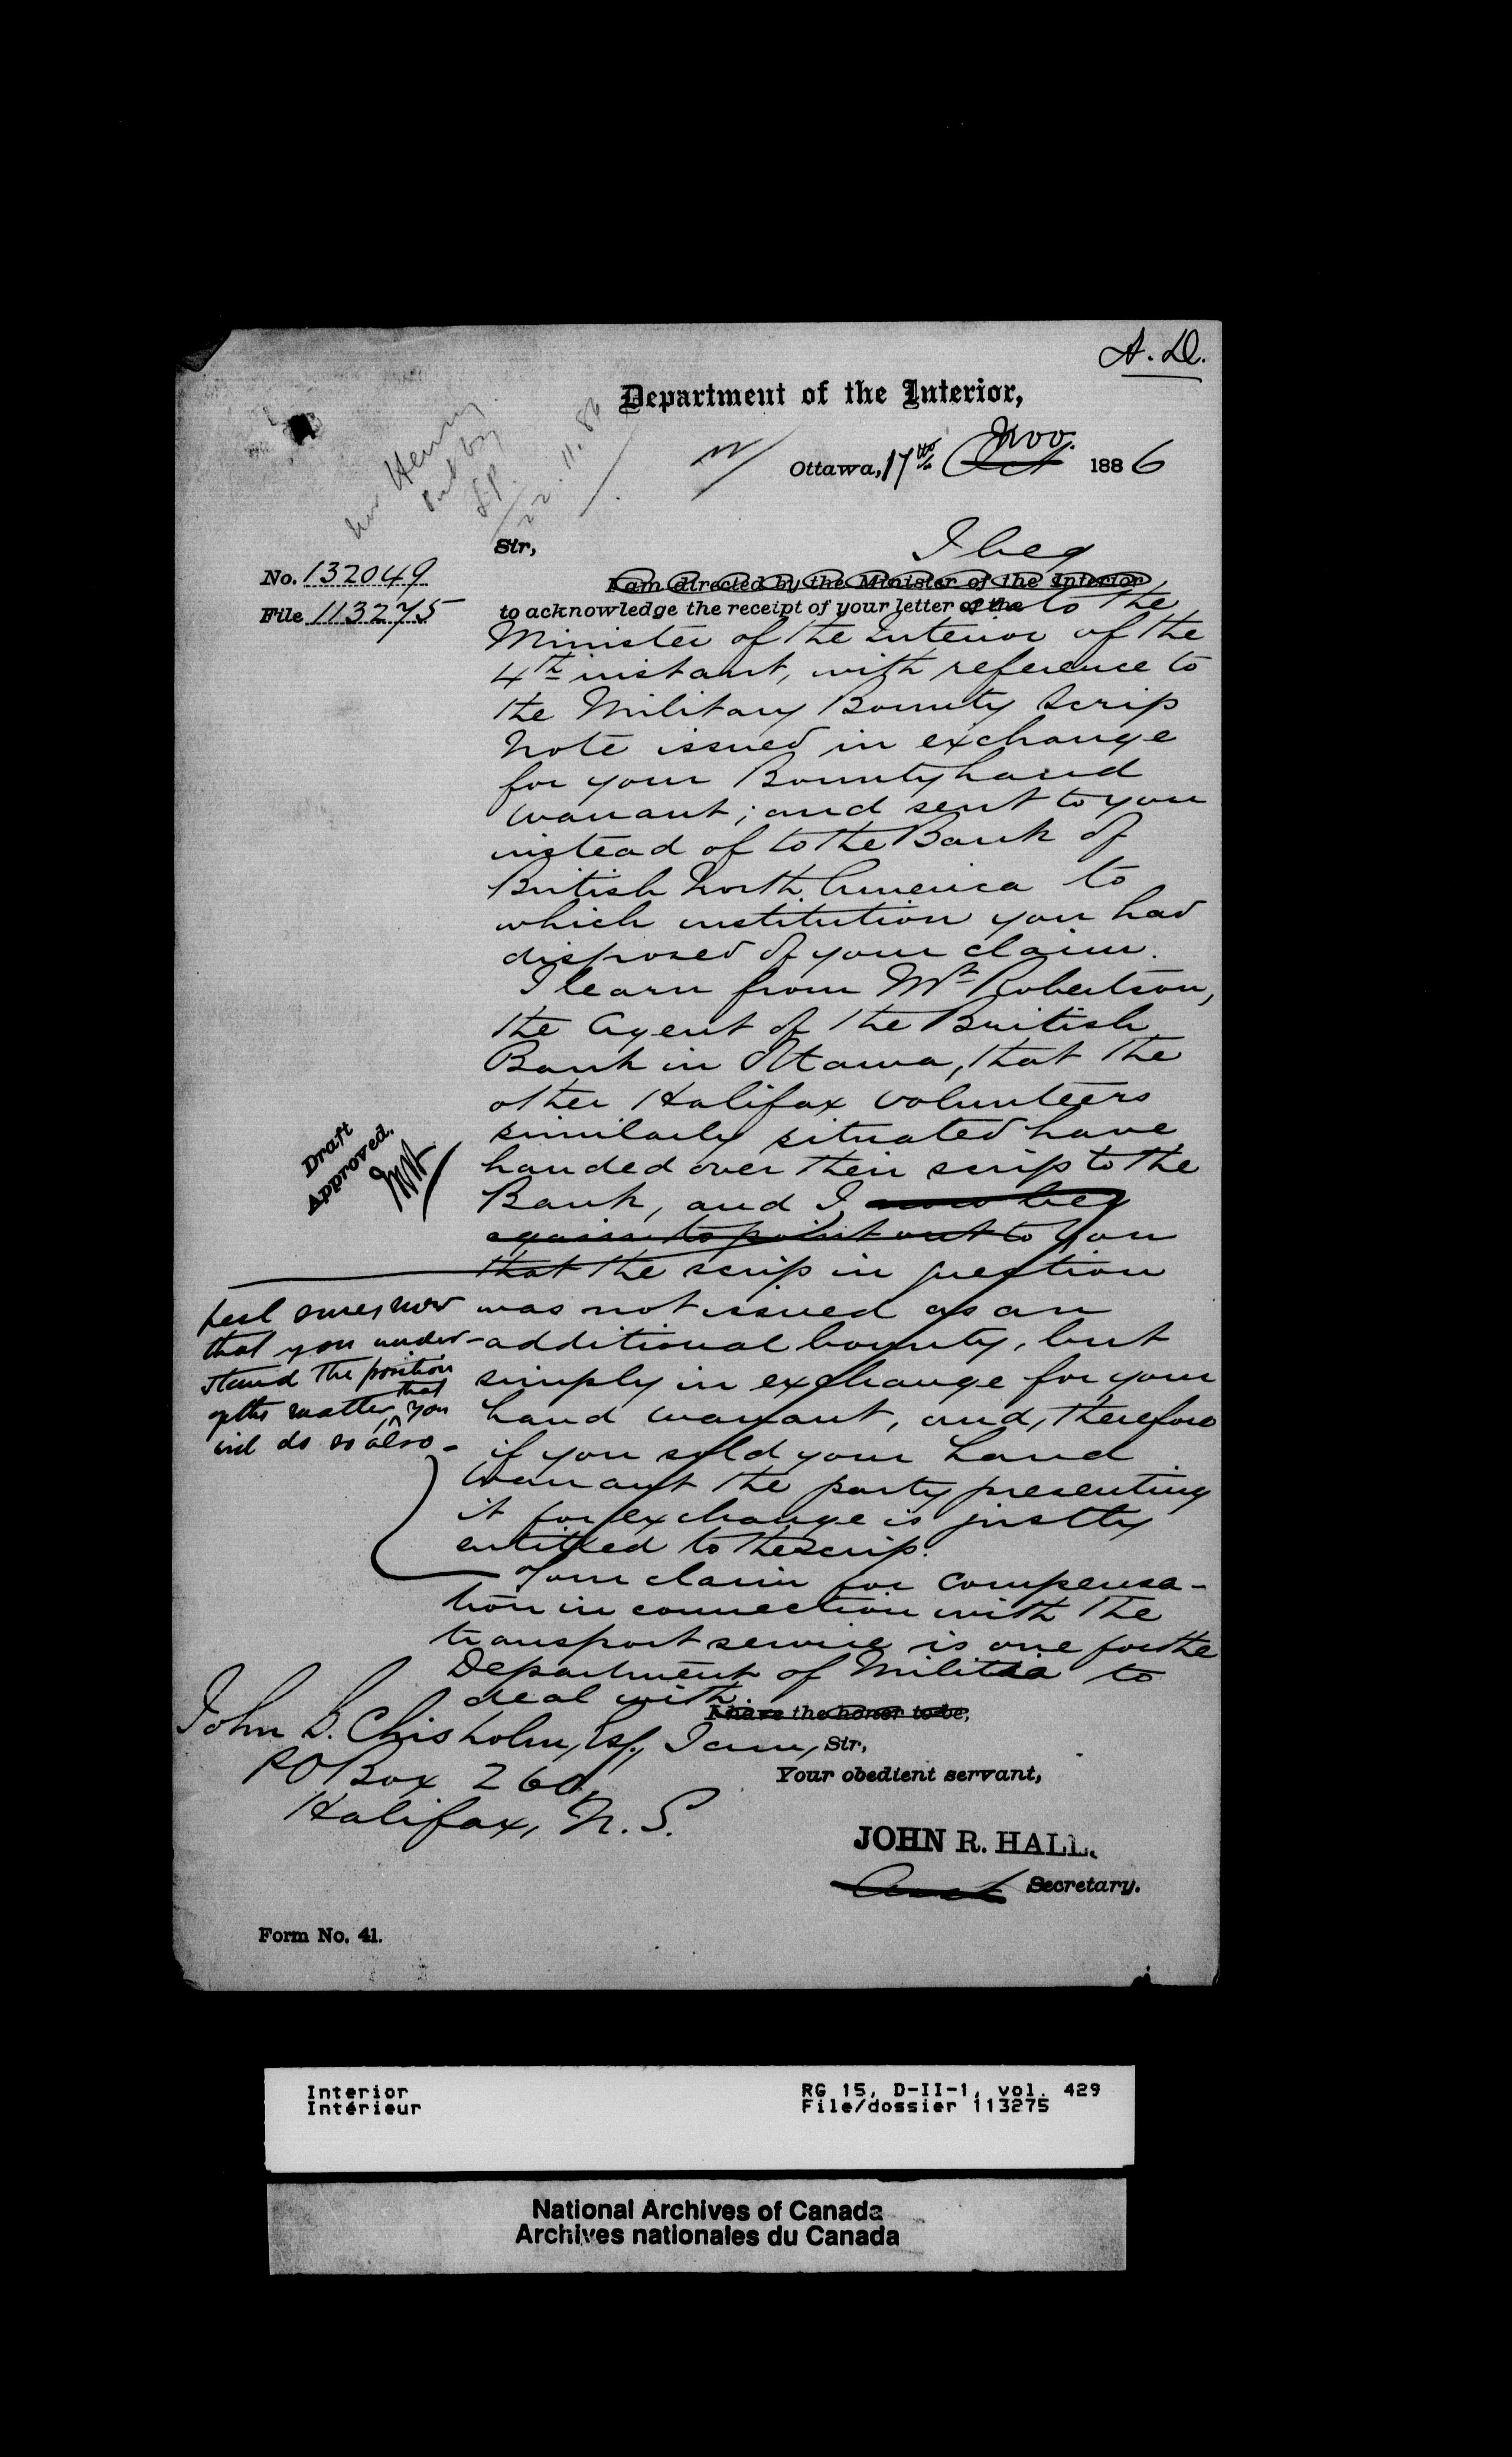 A. D.
Department of the Interior,
Ottawa, 17th Oct Nov. 1886
Mr Henry
22.11.86
Sir,
No. 132049
File 113275
I beg
I am directed by the Minister of the Interior
to acknowledge the receipt of your letter of the to the
Minister of the Interior of the
4th instant, with reference to
the Military Bounty Scrip
Note issued in exchange
for your Bounty Land
Warrant; and sent to you
instead of to the Bank of
British North America to
which institution you had
disposed of your claim.
I learn from Mr Robertson,
the Agent of the British
Bank in Ottawa, that the
other Halifax volunteers
similarly situated have
handed over their scrip to the
Bank, and I now beg
again to point out to you
that the scrip in question
was not issued as an
additional bounty, but
simply in exchange for your
Land warrant, and, therefore
if you sold your Land
Warrant the party presenting
it for exchange is justly
entitled to the scrip.
Draft
Approved.
feel sure, now
that you under-
stand the position
of the matter, that you
will do so also-
Your claim for compensa-
tion in connection with the
transport service is one for the
Department of Militia to
deal with.
I have the honor to be,
I am, Sir,
Your obedient servant,
John B. Chisholm, Esq.,
PO Box 260,
Halifax, N. S.
JOHN R. HALL.
Secretary.
Form No. 41.
Interior
Intérieur
RG 15, D-II-1, vol. 429
File/dossier 113275
National Archives of Canada
Archives nationales du Canada